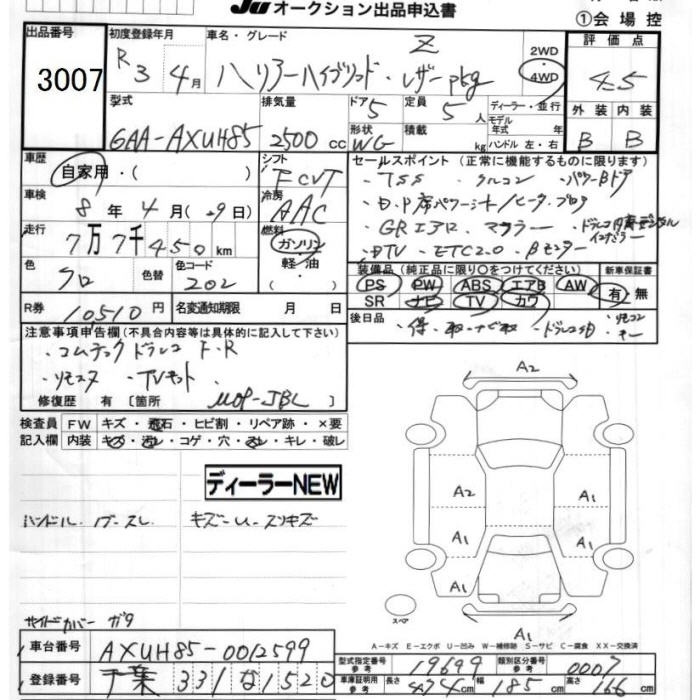 JU オークション出品申込書
①会場控
出品番号
3007
初度登録年月
R3年4月
車名・グレード
ハリアーハイブリッド・Z レザーpkg
2WD
4WD
評価点
4.5
型式
6AA-AXUH85
排気量
2500 cc
ドア
5
形状
WG
定員
5人
積載
kg
ディーラー・並行
モデル
年式 年
ハンドル 左・右
外装 内装
B B
車歴
自家用・( )
車検
8年4月(29日)
走行
7万7千450km
色
クロ
色替
色コード
202
シフト
FCVT
冷房
AAC
燃料
ガソリン
軽・油
( )
セールスポイント(正常に機能するものに限ります)
・TSS ・クルコン ・パワーBドア
・D.P席パワーシート/ヒータ・ブロア
・GRエアロ マフラー ・ドラレコ内蔵デジタルインナーミラー
・DTV ・ETC2.0 ・Bモニター
装備品(純正品に限り○をつけてください)
PS PW ABS エアB AW
SR ナビ TV カワ
新車保証書
有・無
R券
10510円
名変通知期限 月 日
後日品
・保・取・ナビ取 ・ドラレコ取 ・リモコン
・キー
注意事項申告欄(不具合内容等は具体的に記入して下さい)
・コムテックドラレコ F・R
・リモスタ ・TVキット
修復歴 有 [箇所 MOP-JBL ]
検査員記入欄
FW キズ・飛石・ヒビ割・リペア跡・×要
内装 キズ・汚レ・コゲ・穴・スレ・キレ・破レ
ディーラーNEW
ハンドル・レザースレ キズ-U-スリキズ
サイドカバー ガタ
A2
A2
A1
A1
A1
A1
A1
A1
スペア
A-キズ E-エクボ U-凹み W-補修跡 S-サビ C-腐食 XX-交換済
車台番号
AXUH85-0012599
登録番号
千葉 331 な 1520
型式指定番号 参考
19699
類別区分番号 参考
0007
車庫証明用 参考
長さ 474cm 幅 185cm 高さ 166cm